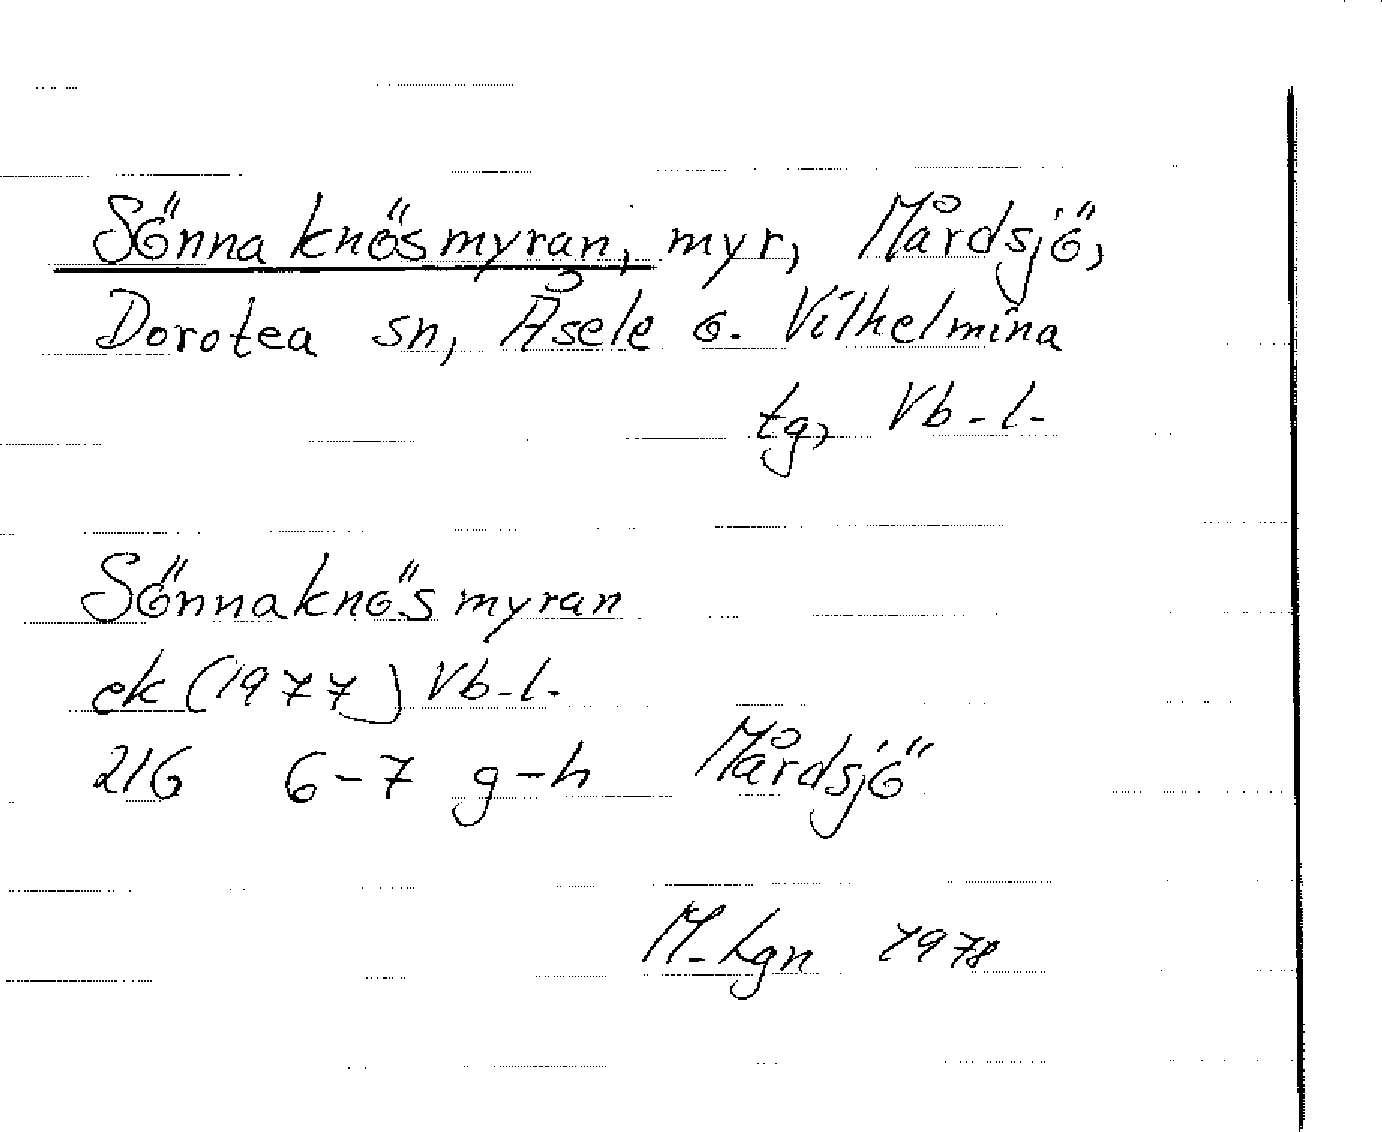 Sönna knösmyran, myr, Mårdsjö,
Dorotea sn, Åsele o. Vilhelmina
tg, Vb-l-
Sönnaknösmyran
ek (1977) Vb-l-
216 6-7 g-h Mårdsjö
M-Lgn 1978